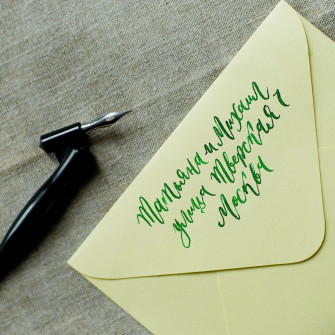 Татьяна и Михаил
улица Тверская 7
Москва